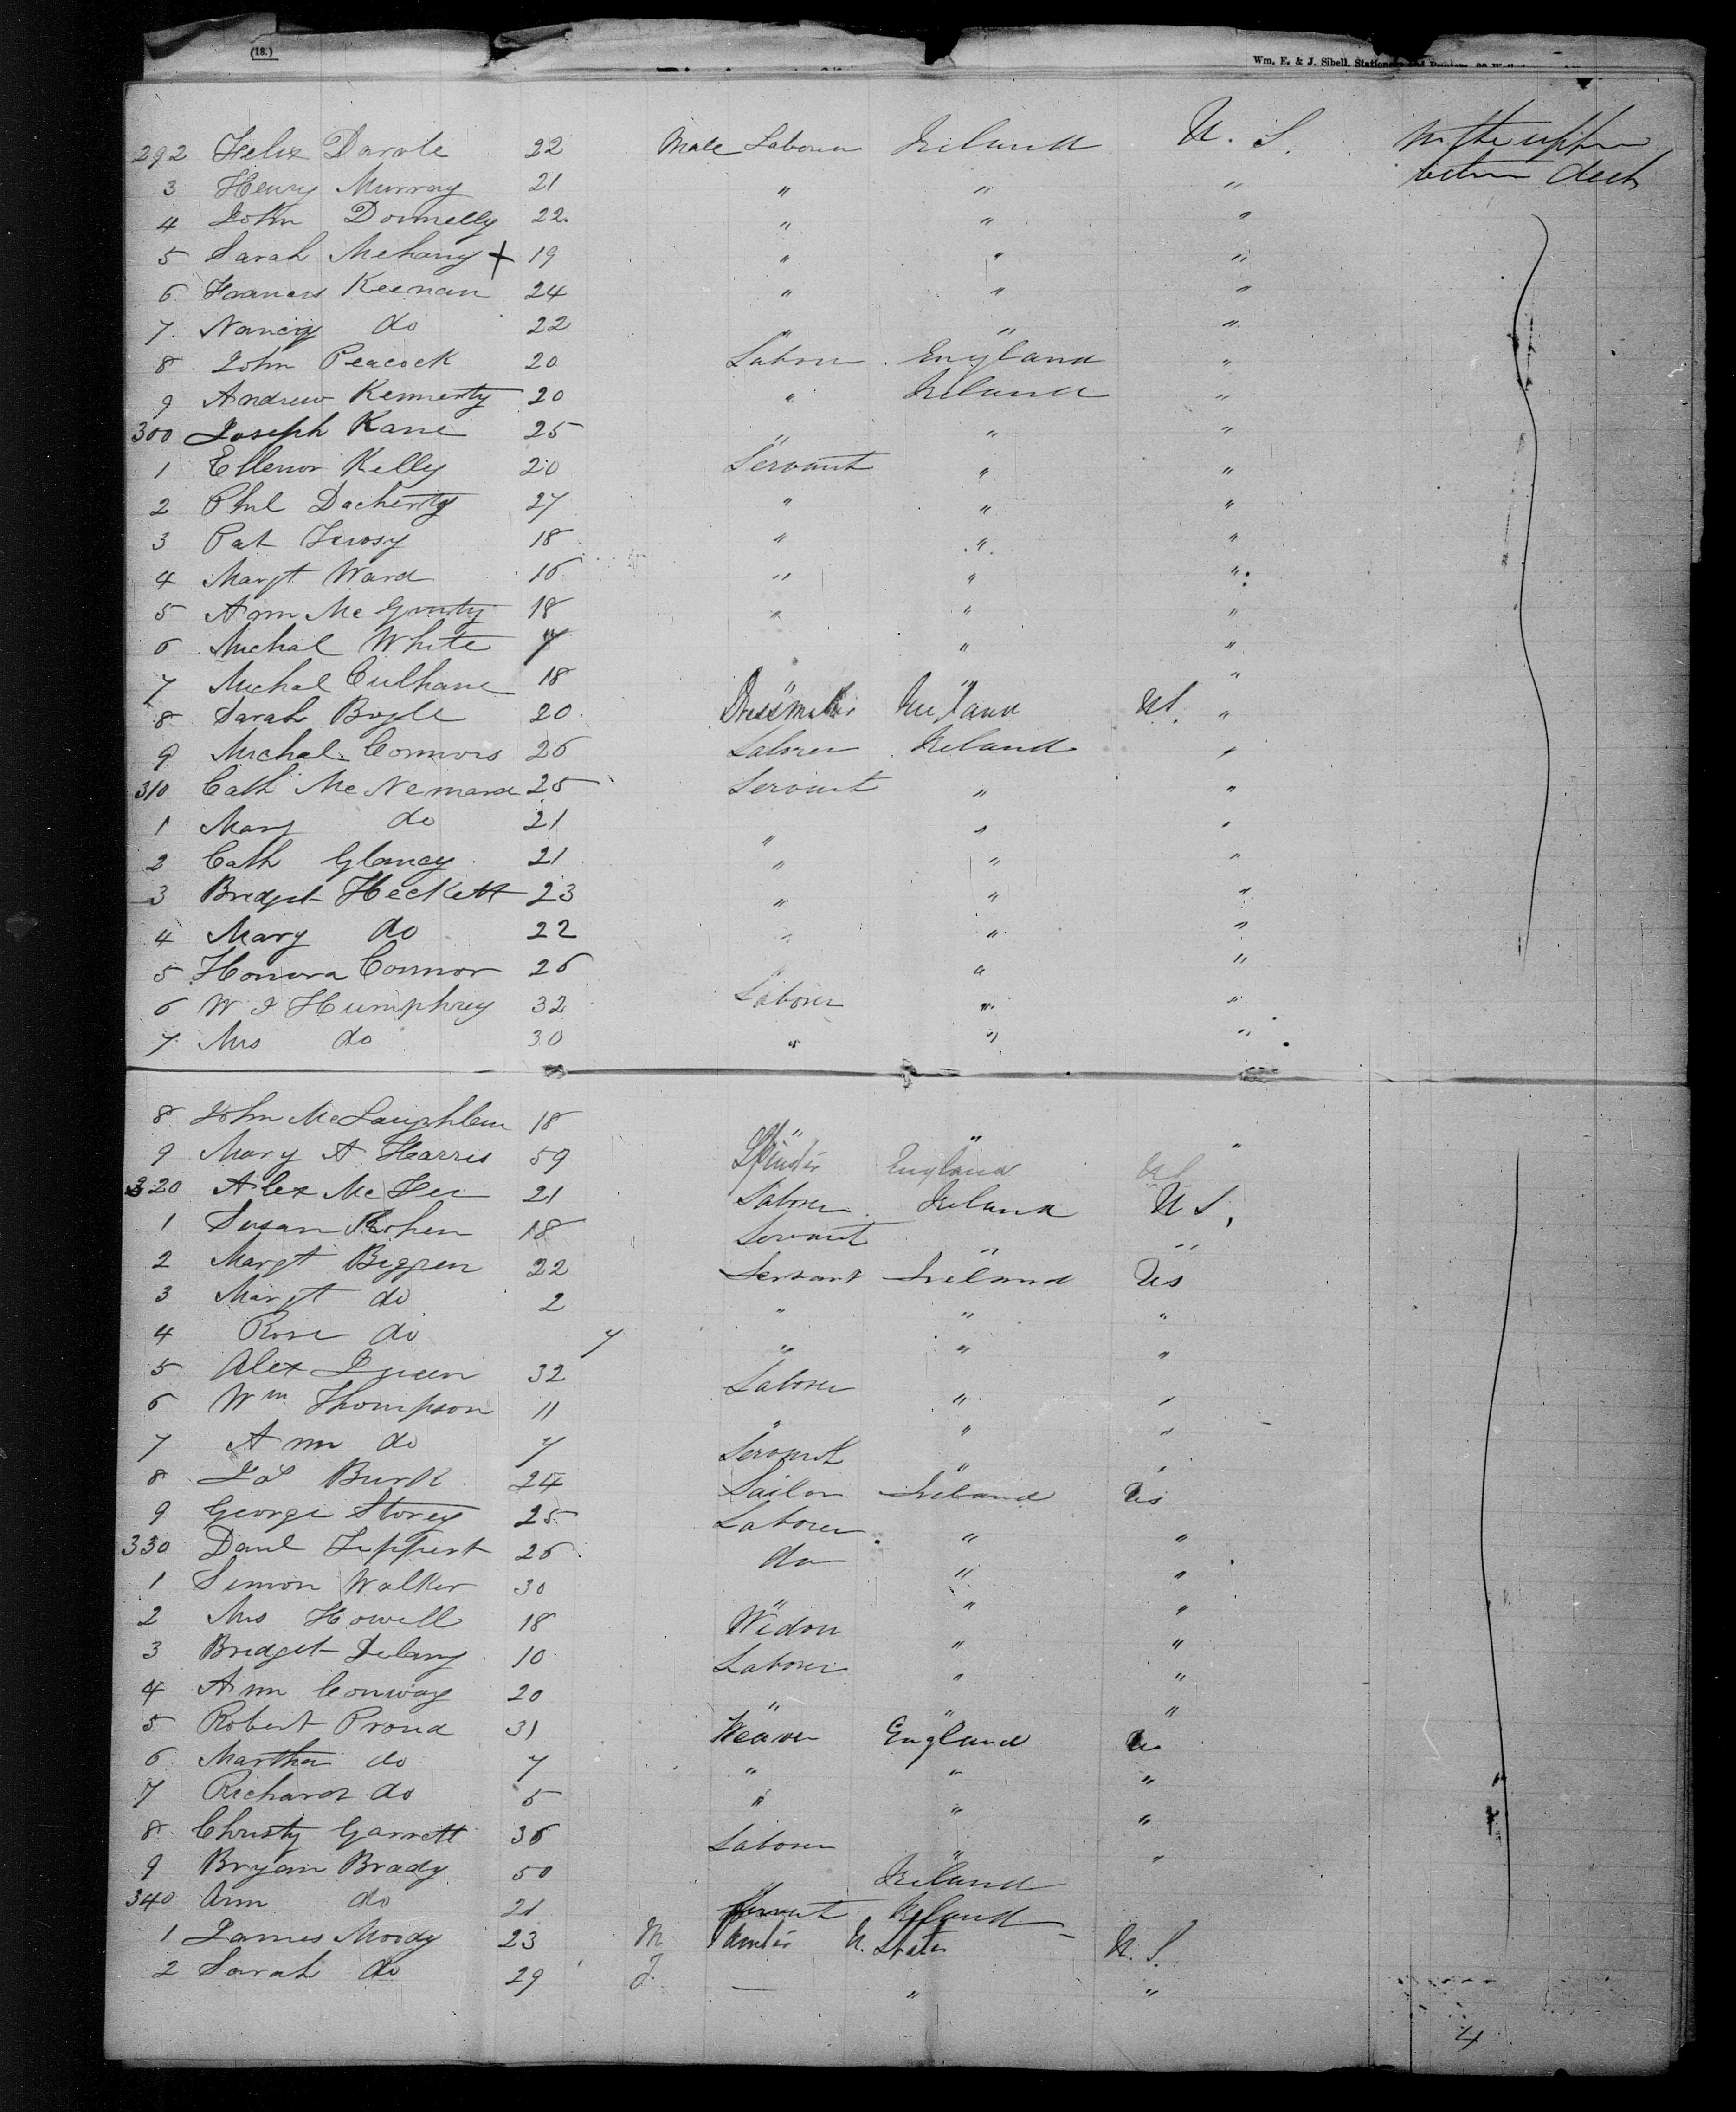 (18.)
Wm. E. & J. Sibell, Stationers and Printers,
292 Felix Darole 22 Male Laborer Ireland U. S. In the upper
3 Henry Murray 21 " " " between deck
4 John Donnelly 22 " " "
5 Sarah Mehany + 19 " " "
6 Frances Keenan 24 " " "
7 Nancy do 22 " " "
8 John Peacock 20 Laborer England "
9 Andrew Kennerty 20 " Ireland "
300 Joseph Kane 25 " " "
1 Ellenor Kelly 20 Servant " "
2 Phil Docherty 27 " " "
3 Pat 18 " " "
4 Margt Ward 16 " " "
5 Ann Mc Ginty 18 " " "
6 Michal White 7 " "
7 Michal Culhane 18 " " "
8 Sarah Bogle 20 Dressmaker Ireland US. "
9 Michal Connors 26 Laborer Ireland "
310 Cath Mc Nemara 25 Servant " "
1 Mary do 21 " " "
2 Cath Glancy 21 " " "
3 Bredget Heckett 23 " " "
4 Mary do 22 " " "
5 Honora Connor 26 " "
6 W J Humphrey 32 Laborer " "
7 Mrs do 30 " " "
8 John McLaughlen 18 " " "
9 Mary A Harris 59 England US
320 Alex Mc Fee 21 Laborer Ireland U S.
1 Susan 18 Servant " "
2 Margt Biggen 22 Servant Ireland Us
3 Margt do 2 " " "
4 Rose do 7 " " "
5 Alex 32 Laborer " "
6 Wm Thompson 11 " " "
7 Ann do 7 Servant " "
8 Jas Burk 24 Sailor Ireland Us
9 George Storey 25 Laborer " "
330 Danl Tuppert 26 do " "
1 Simon Walker 30 " " "
2 Mrs Howell 18 Widow " "
3 Bredget Delany 10 Laborer " "
4 Ann Conway 20 " " "
5 Robert Proud 31 Weaver England U
6 Martha do 7 " " "
7 Richard do 5 " " "
8 Christy Garrett 36 Laborer " "
9 Bryan Brady 50 Ireland
340 Ann do 21 Servant Ireland
1 James Moody 23 M Painter U. States U. S.
2 Sarah do 29 F. — " "
4